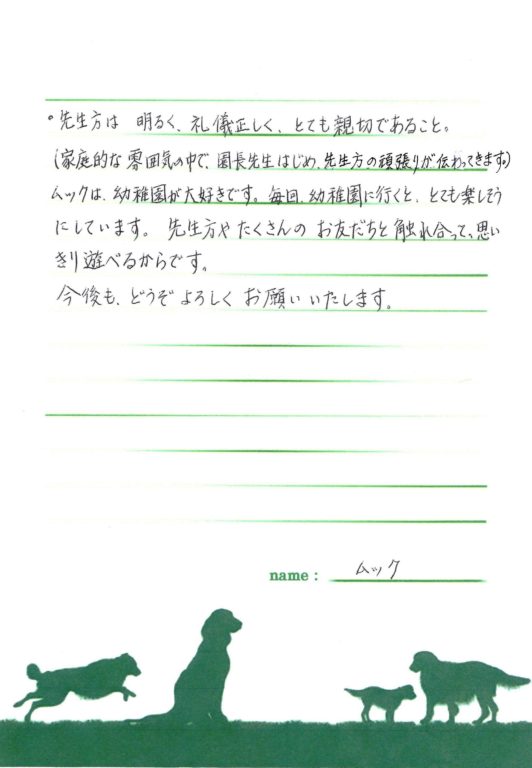 ・先生方は 明るく、礼儀正しく、とても親切であること。
(家庭的な雰囲気の中で、園長先生はじめ、先生方の頑張りが伝わってきます。)
ムックは、幼稚園が大好きです。毎回、幼稚園に行くと、とても楽しそう
にしています。先生方やたくさんの お友だちと触れ合って、思い
きり遊べるからです。
今後も、どうぞ よろしく お願いいたします。
name : ムック